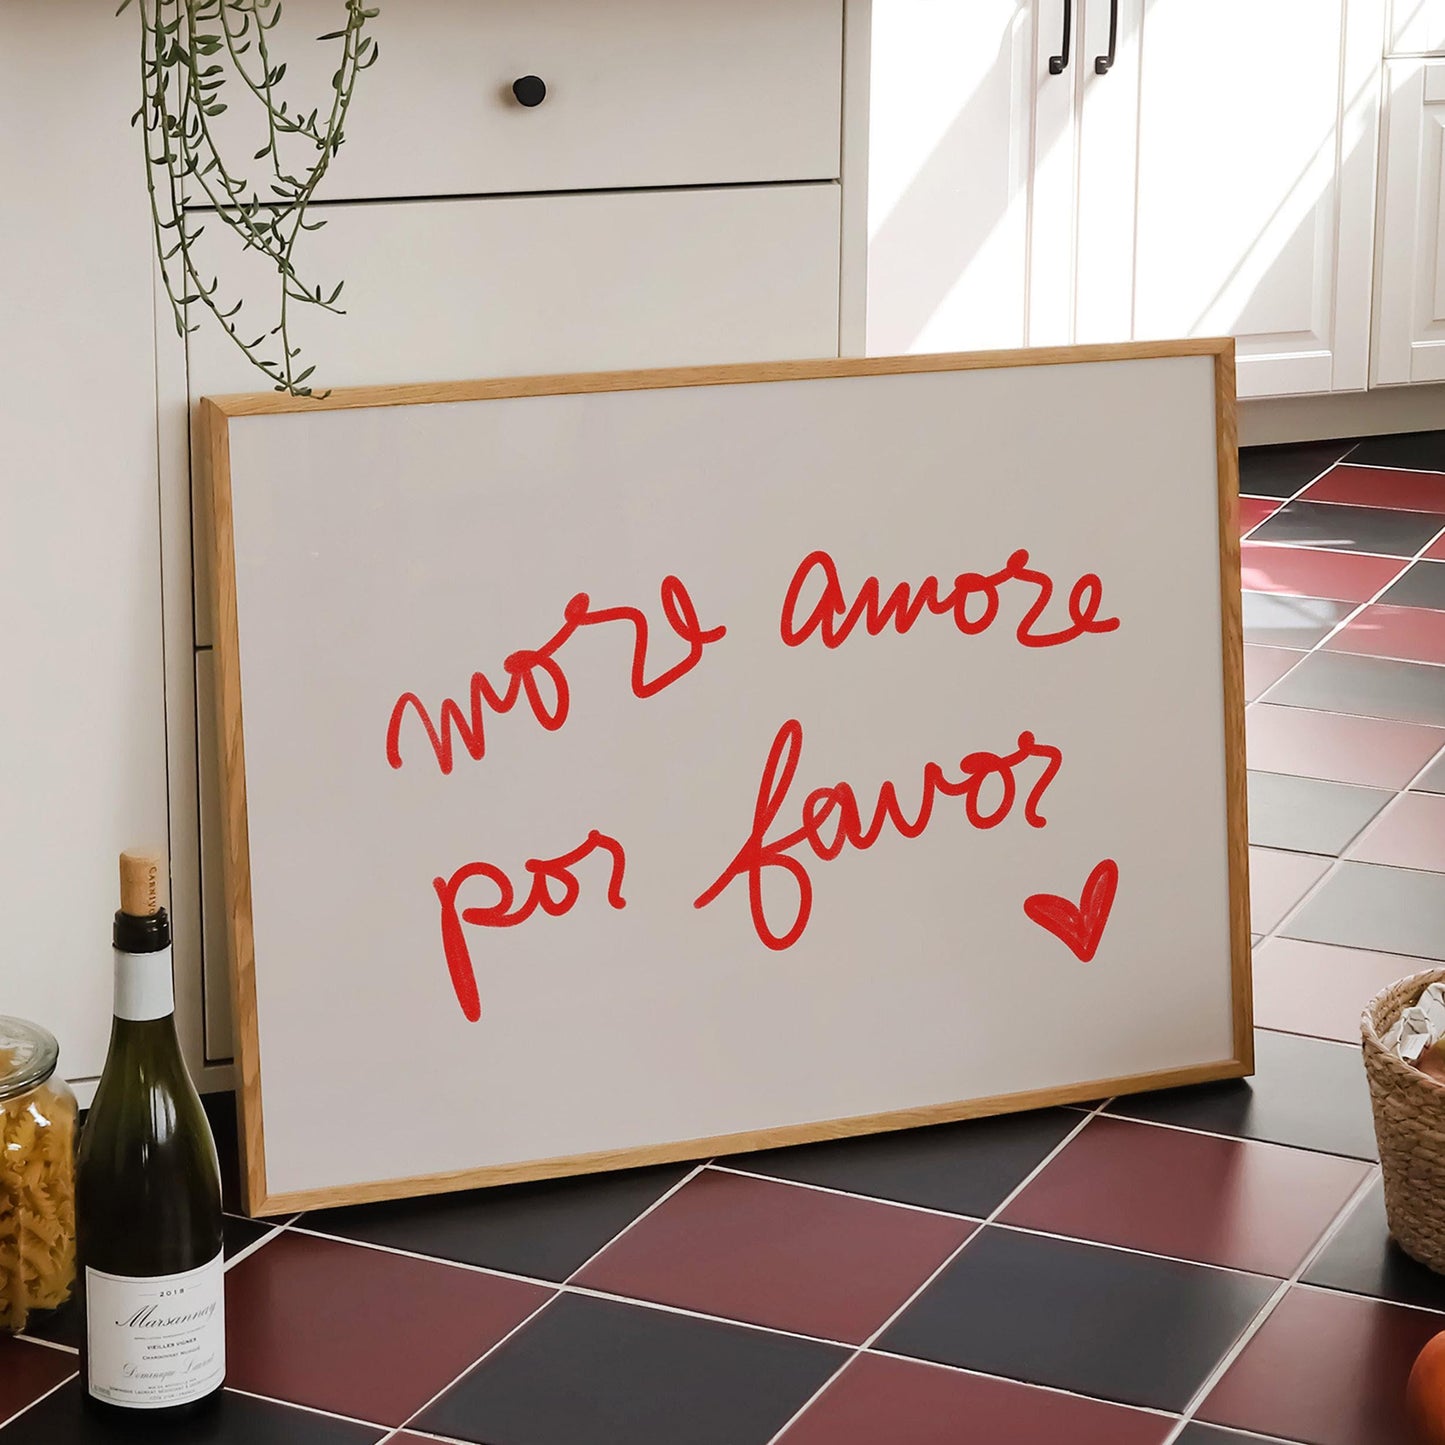 more amore
por favor
CARNIVO
2018
Marsannay
VIEILLES VIGNES
Dominique Laurent
CÔTE D'OR - FRANCE